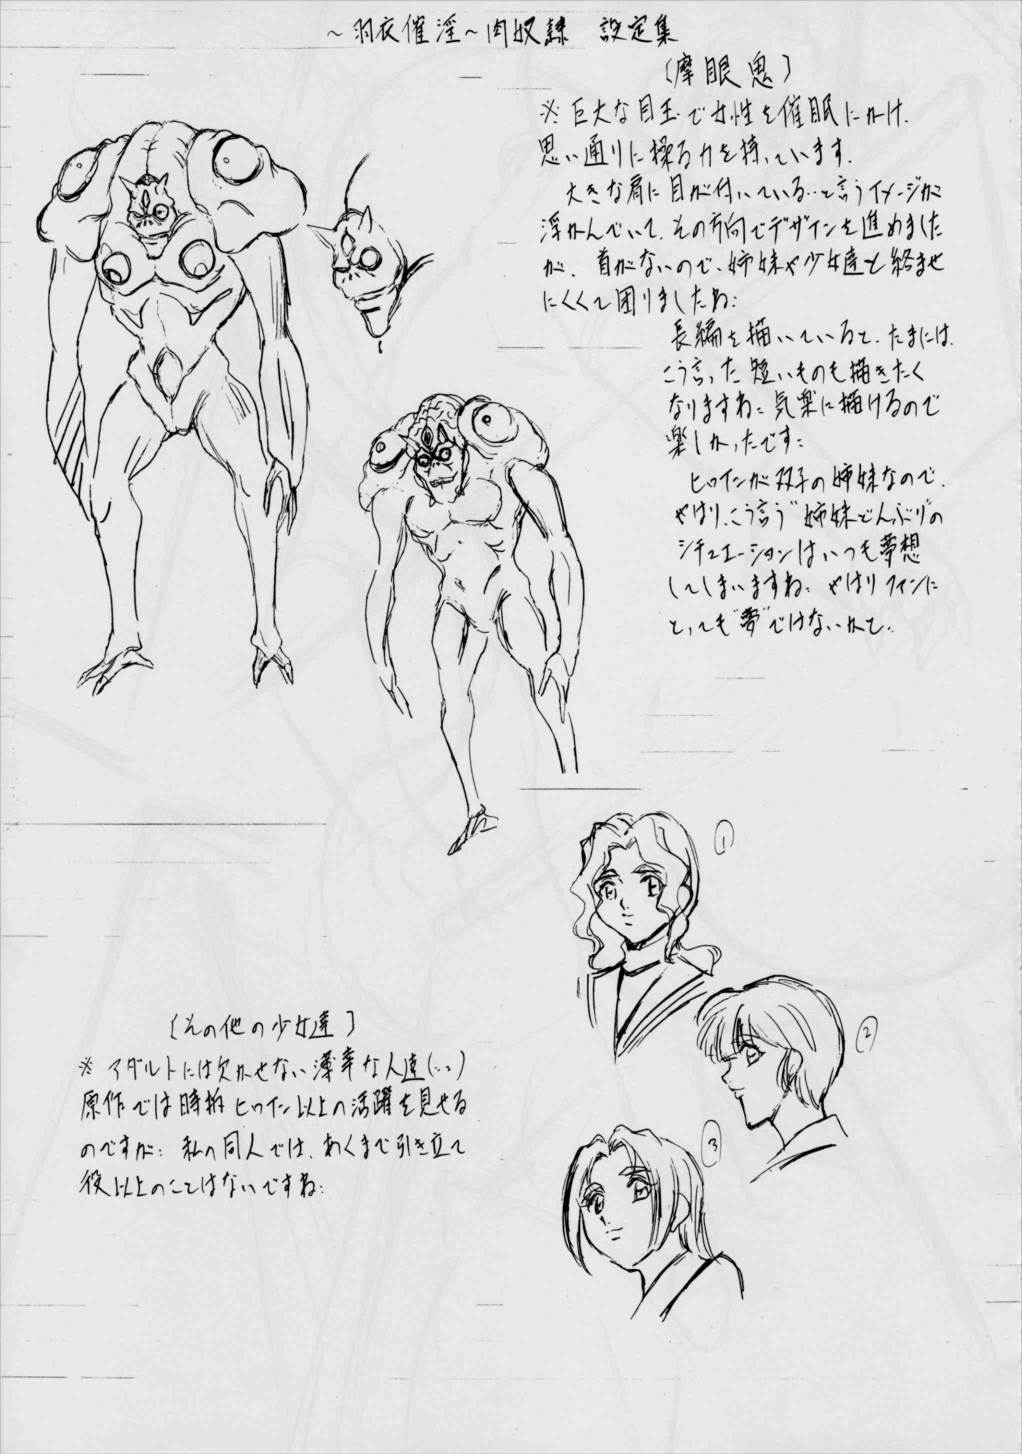 ～羽衣催淫～肉奴隷 設定集
(摩眼鬼)
※巨大な目玉で女性を催眠にかけ、
思い通りに操る力を持っています。
大きな肩に目が付いている‥と言うイメージが
浮かんでいて、その方向でデザインを進めました
が、首がないので、姉妹や少女達と絡ませ
にくくて困りましたね:
長編を描いていると、たまには、
こう言った短いものも描きたく
なりますね: 気楽に描けるので
楽しかったです:
ヒロインが双子の姉妹なので、
やはり、こう言う"姉妹どんぶり"の
シチュエーションはいつも夢想
してしまいますね: やはりファンに
とっても"夢"ではないかと‥
①
②
③
(その他の少女達)
※アダルトには欠かせない薄幸な人達(‥)
原作では時折ヒロイン以上の活躍を見せる
のですが: 私の同人では、あくまで引き立て
役以上のことはないですね: